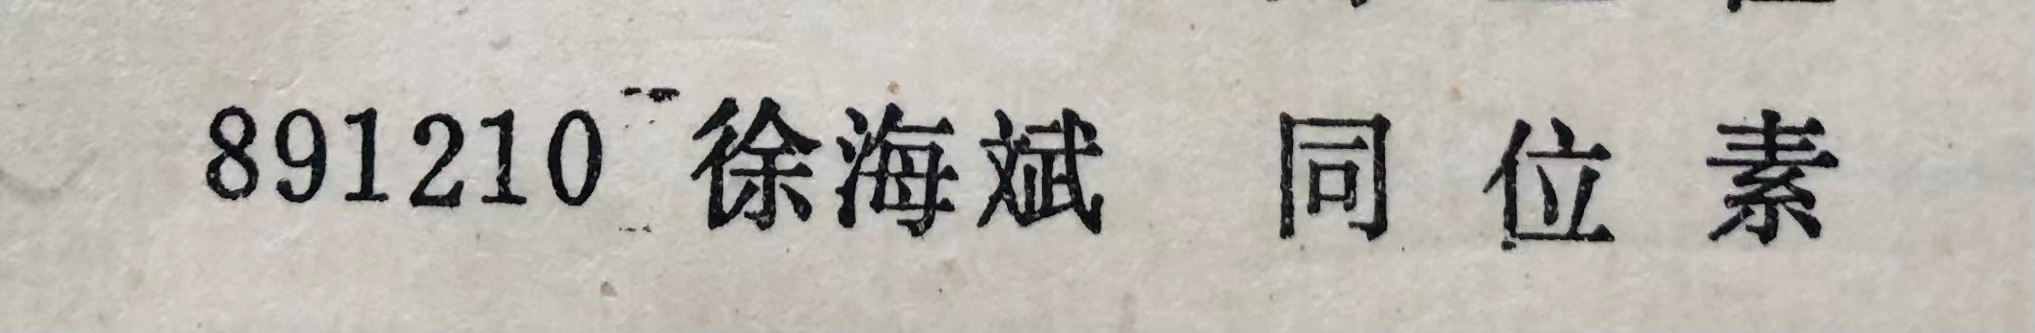 891210 徐海斌 同位素